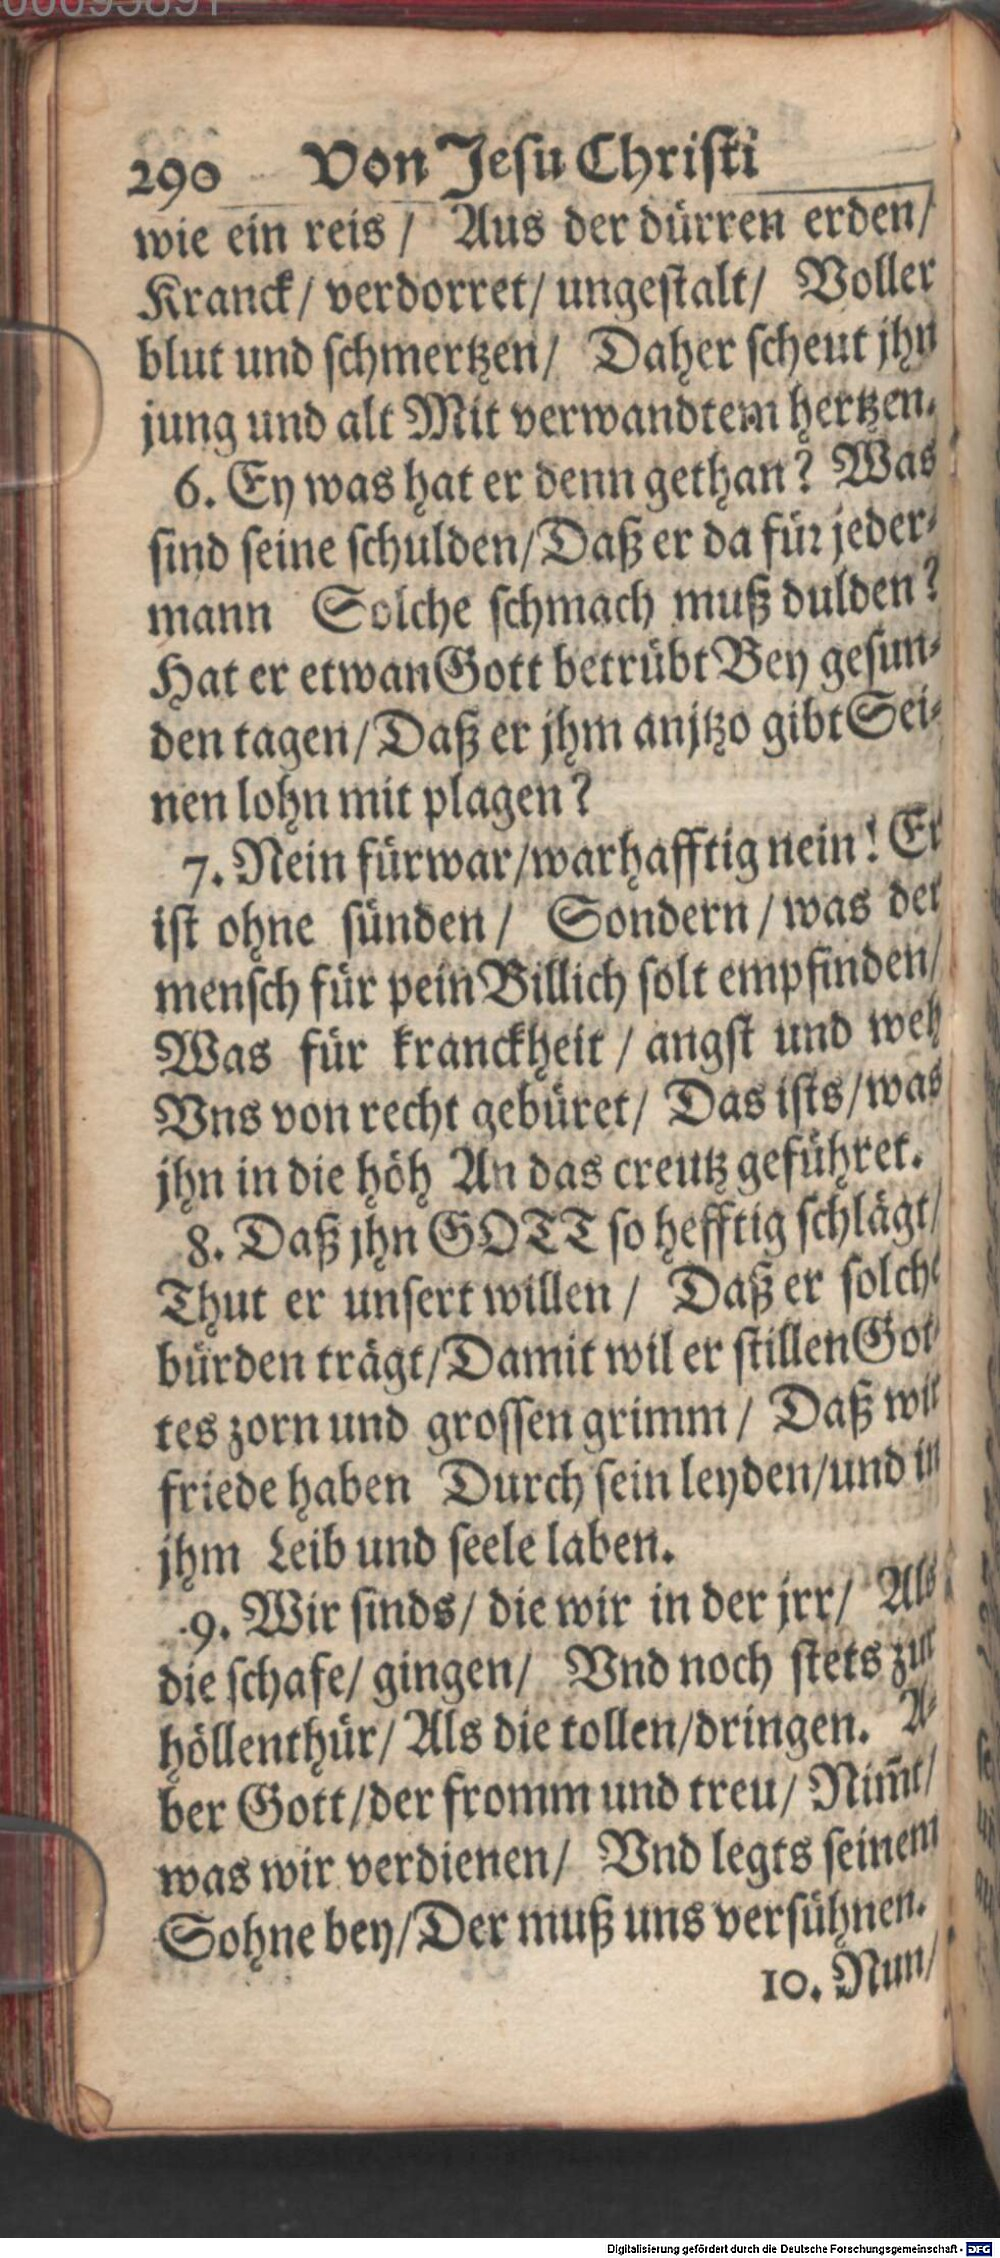 290 Von Jesu Christi
wie ein reis / Aus der dürren erden/
Kranck/ verdorret/ ungestalt/ Voller
blut und schmertzen/ Daher scheut jhn
jung und alt Mit verwandtem hertzen.
6. Ey was hat er denn gethan? Was
sind seine schulden/Daß er da für jeder-
mann Solche schmach muß dulden?
Hat er etwan Gott betrübt Bey gesun-
den tagen/Daß er jhm anjtzo gibt Sei-
nen lohn mit plagen?
7. Nein fürwar/warhafftig nein! Er
ist ohne sünden/ Sondern/was der
mensch für pein Billich solt empfinden/
Was für kranckheit / angst und weh
Vns von recht gebüret/ Das ists/was
jhn in die höh An das creutz geführet.
8. Daß jhn GOTT so hefftig schlägt/
Thut er unsert willen/ Daß er solche
bürden trägt/Damit wil er stillen Got-
tes zorn und grossen grimm/ Daß wir
friede haben Durch sein leyden/und in
jhm Leib und seele laben.
9. Wir sinds/ die wir in der jrr/ Als
die schafe/ gingen/ Vnd noch stets zur
höllenthür/ Als die tollen/dringen. A-
ber Gott/der fromm und treu/ Nim̃t/
was wir verdienen/ Vnd legts seinem
Sohne bey/Der muß uns versühnen.
10. Nun/
00095891
Digitalisierung gefördert durch die Deutsche Forschungsgemeinschaft - DFG